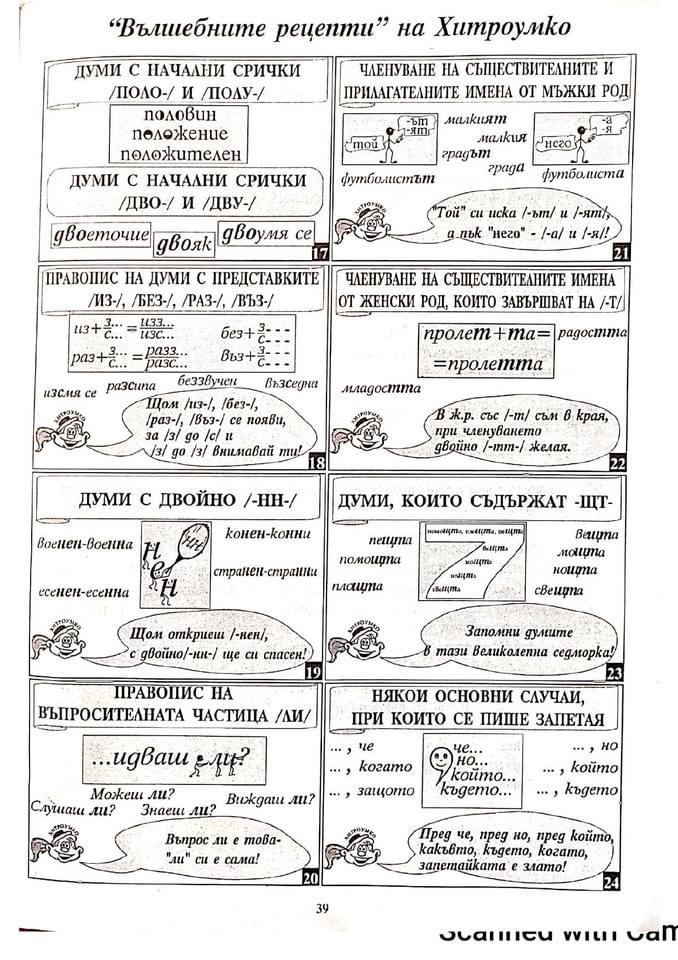 "Вълшебните рецепти" на Хитроумко
ДУМИ С НАЧАЛНИ СРИЧКИ
/ПОЛО-/ И /ПОЛУ-/
половин
положение
положителен
ДУМИ С НАЧАЛНИ СРИЧКИ
/ДВО-/ И /ДВУ-/
двоеточие
двояк
двоумя се
17
ЧЛЕНУВАНЕ НА СЪЩЕСТВИТЕЛНИТЕ И
ПРИЛАГАТЕЛНИТЕ ИМЕНА ОТ МЪЖКИ РОД
той
-ът
-ят
малкият
малкия
градът
града
него
-а
-я
футболистът
футболиста
ХИТРОУМКО
"Той" си иска /-ът/ и /-ят/,
а пък "него" - /-а/ и /-я/!
21
ПРАВОПИС НА ДУМИ С ПРЕДСТАВКИТЕ
/ИЗ-/, /БЕЗ-/, /РАЗ-/, /ВЪЗ-/
из+ з... = изз...
с... изс...
без+ з---
с---
раз+ з... = разз...
с... разс...
Въз+ з---
с---
изсмя се
разсипа
беззвучен
възседна
ХИТРОУМКО
Щом /из-/, /без-/,
/раз-/, /въз-/ се появи,
за /з/ до /с/ и
/з/ до /з/ внимавай ти!
18
ЧЛЕНУВАНЕ НА СЪЩЕСТВИТЕЛНИТЕ ИМЕНА
ОТ ЖЕНСКИ РОД, КОИТО ЗАВЪРШВАТ НА /-Т/
пролет+та=
=пролетта
радостта
младостта
ХИТРОУМКО
В ж.р. със /-т/ съм в края,
при членуването
двойно /-тт-/ желая.
22
ДУМИ С ДВОЙНО /-НН-/
военен-военна
есенен-есенна
Н
е
Н
НН
конен-конни
странен-странни
ХИТРОУМКО
Щом откриеш /-нен/,
с двойно/-нн-/ ще си спасен!
19
ДУМИ, КОИТО СЪДЪРЖАТ -ЩТ-
пещта
помощта
плащта
помощта, плащта, пещта
вещта
мощта
нощта
свещта
вещта
мощта
нощта
свещта
ХИТРОУМКО
Запомни думите
в тази великолепна седморка!
23
ПРАВОПИС НА
ВЪПРОСИТЕЛНАТА ЧАСТИЦА /ЛИ/
...идваш ли?
Можеш ли?
Слушаш ли?
Знаеш ли?
Виждаш ли?
ХИТРОУМКО
Въпрос ли е това-
"ли" си е сама!
20
НЯКОИ ОСНОВНИ СЛУЧАИ,
ПРИ КОИТО СЕ ПИШЕ ЗАПЕТАЯ
... , че
... , когато
... , защото
че...
но...
който...
където...
... , но
... , който
... , където
ХИТРОУМКО
Пред че, пред но, пред който,
какъвто, където, когато,
запетайката е злато!
24
39
Scanned with Cam